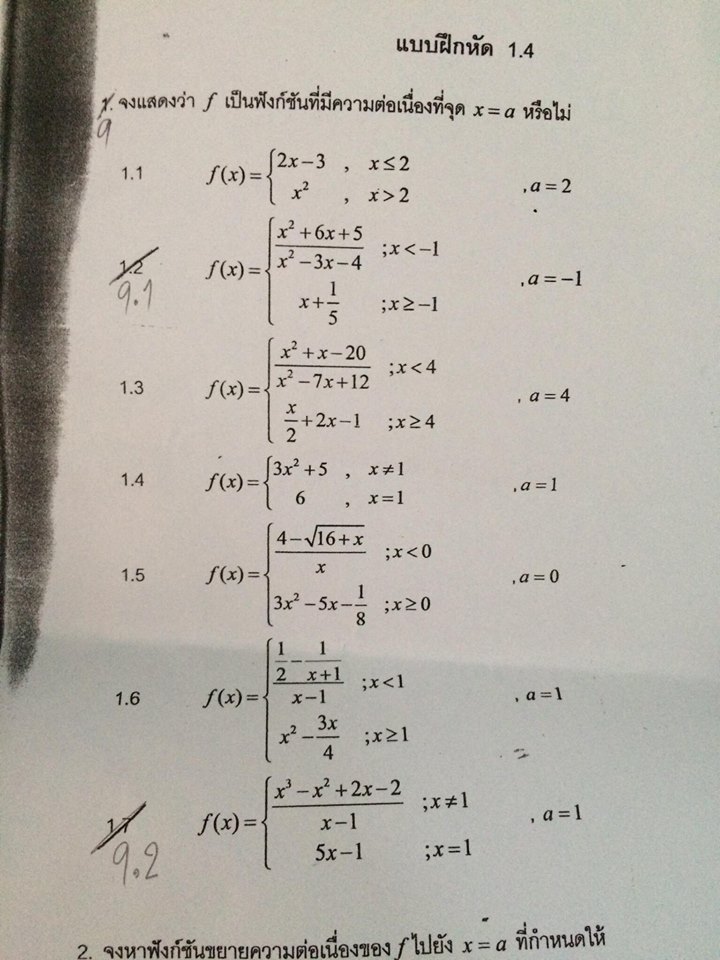 แบบฝึกหัด 1.4
1. จงแสดงว่า f เป็นฟังก์ชันที่มีความต่อเนื่องที่จุด x = a หรือไม่
9
1.1 f(x) = { 2x−3 , x ≤ 2 , a = 2
x² , x > 2
1.2 f(x) = { (x² + 6x + 5)/(x² − 3x − 4) ; x < −1 , a = −1
9.1 x + 1/5 ; x ≥ −1
1.3 f(x) = { (x² + x − 20)/(x² − 7x + 12) ; x < 4 , a = 4
x/2 + 2x − 1 ; x ≥ 4
1.4 f(x) = { 3x² + 5 , x ≠ 1 , a = 1
6 , x = 1
1.5 f(x) = { (4 − √(16 + x))/x ; x < 0 , a = 0
3x² − 5x − 1/8 ; x ≥ 0
1.6 f(x) = { (1/2 − 1/(x+1))/(x−1) ; x < 1 , a = 1
x² − 3x/4 ; x ≥ 1
1.7 f(x) = { (x³ − x² + 2x − 2)/(x − 1) ; x ≠ 1 , a = 1
9.2 5x − 1 ; x = 1
2. จงหาฟังก์ชันขยายความต่อเนื่องของ f ไปยัง x = a ที่กำหนดให้